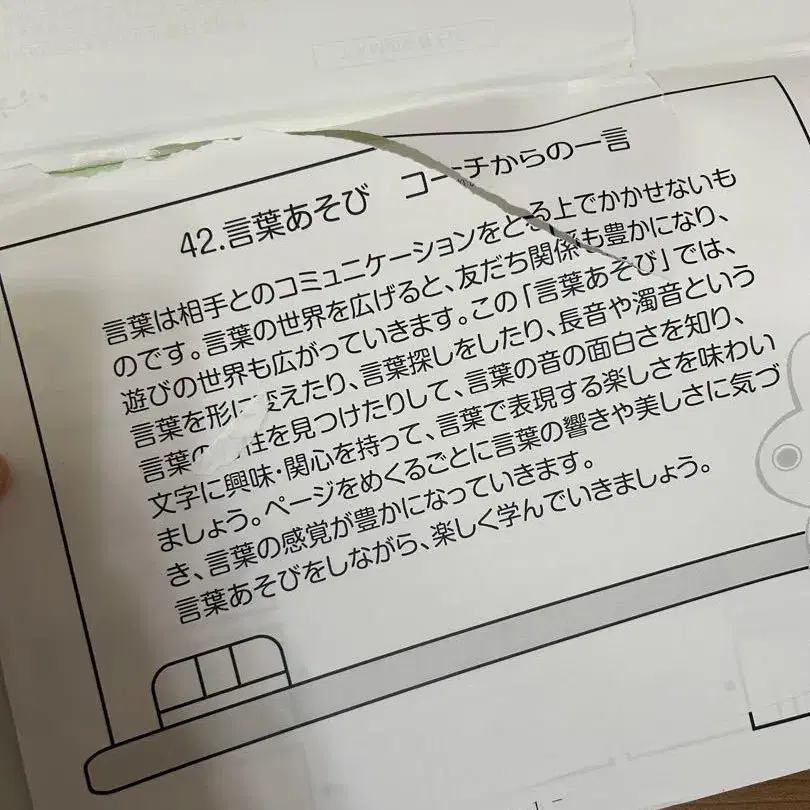 42.言葉あそび コーチからの一言
言葉は相手とのコミュニケーションをとる上でかかせないも
のです。言葉の世界を広げると、友だち関係も豊かになり、
遊びの世界も広がっていきます。この「言葉あそび」では、
言葉を形に変えたり、言葉探しをしたり、長音や濁音という
言葉の 性を見つけたりして、言葉の音の面白さを知り、
文字に興味・関心を持って、言葉で表現する楽しさを味わい
ましょう。ページをめくるごとに言葉の響きや美しさに気づ
き、言葉の感覚が豊かになっていきます。
言葉あそびをしながら、楽しく学んでいきましょう。